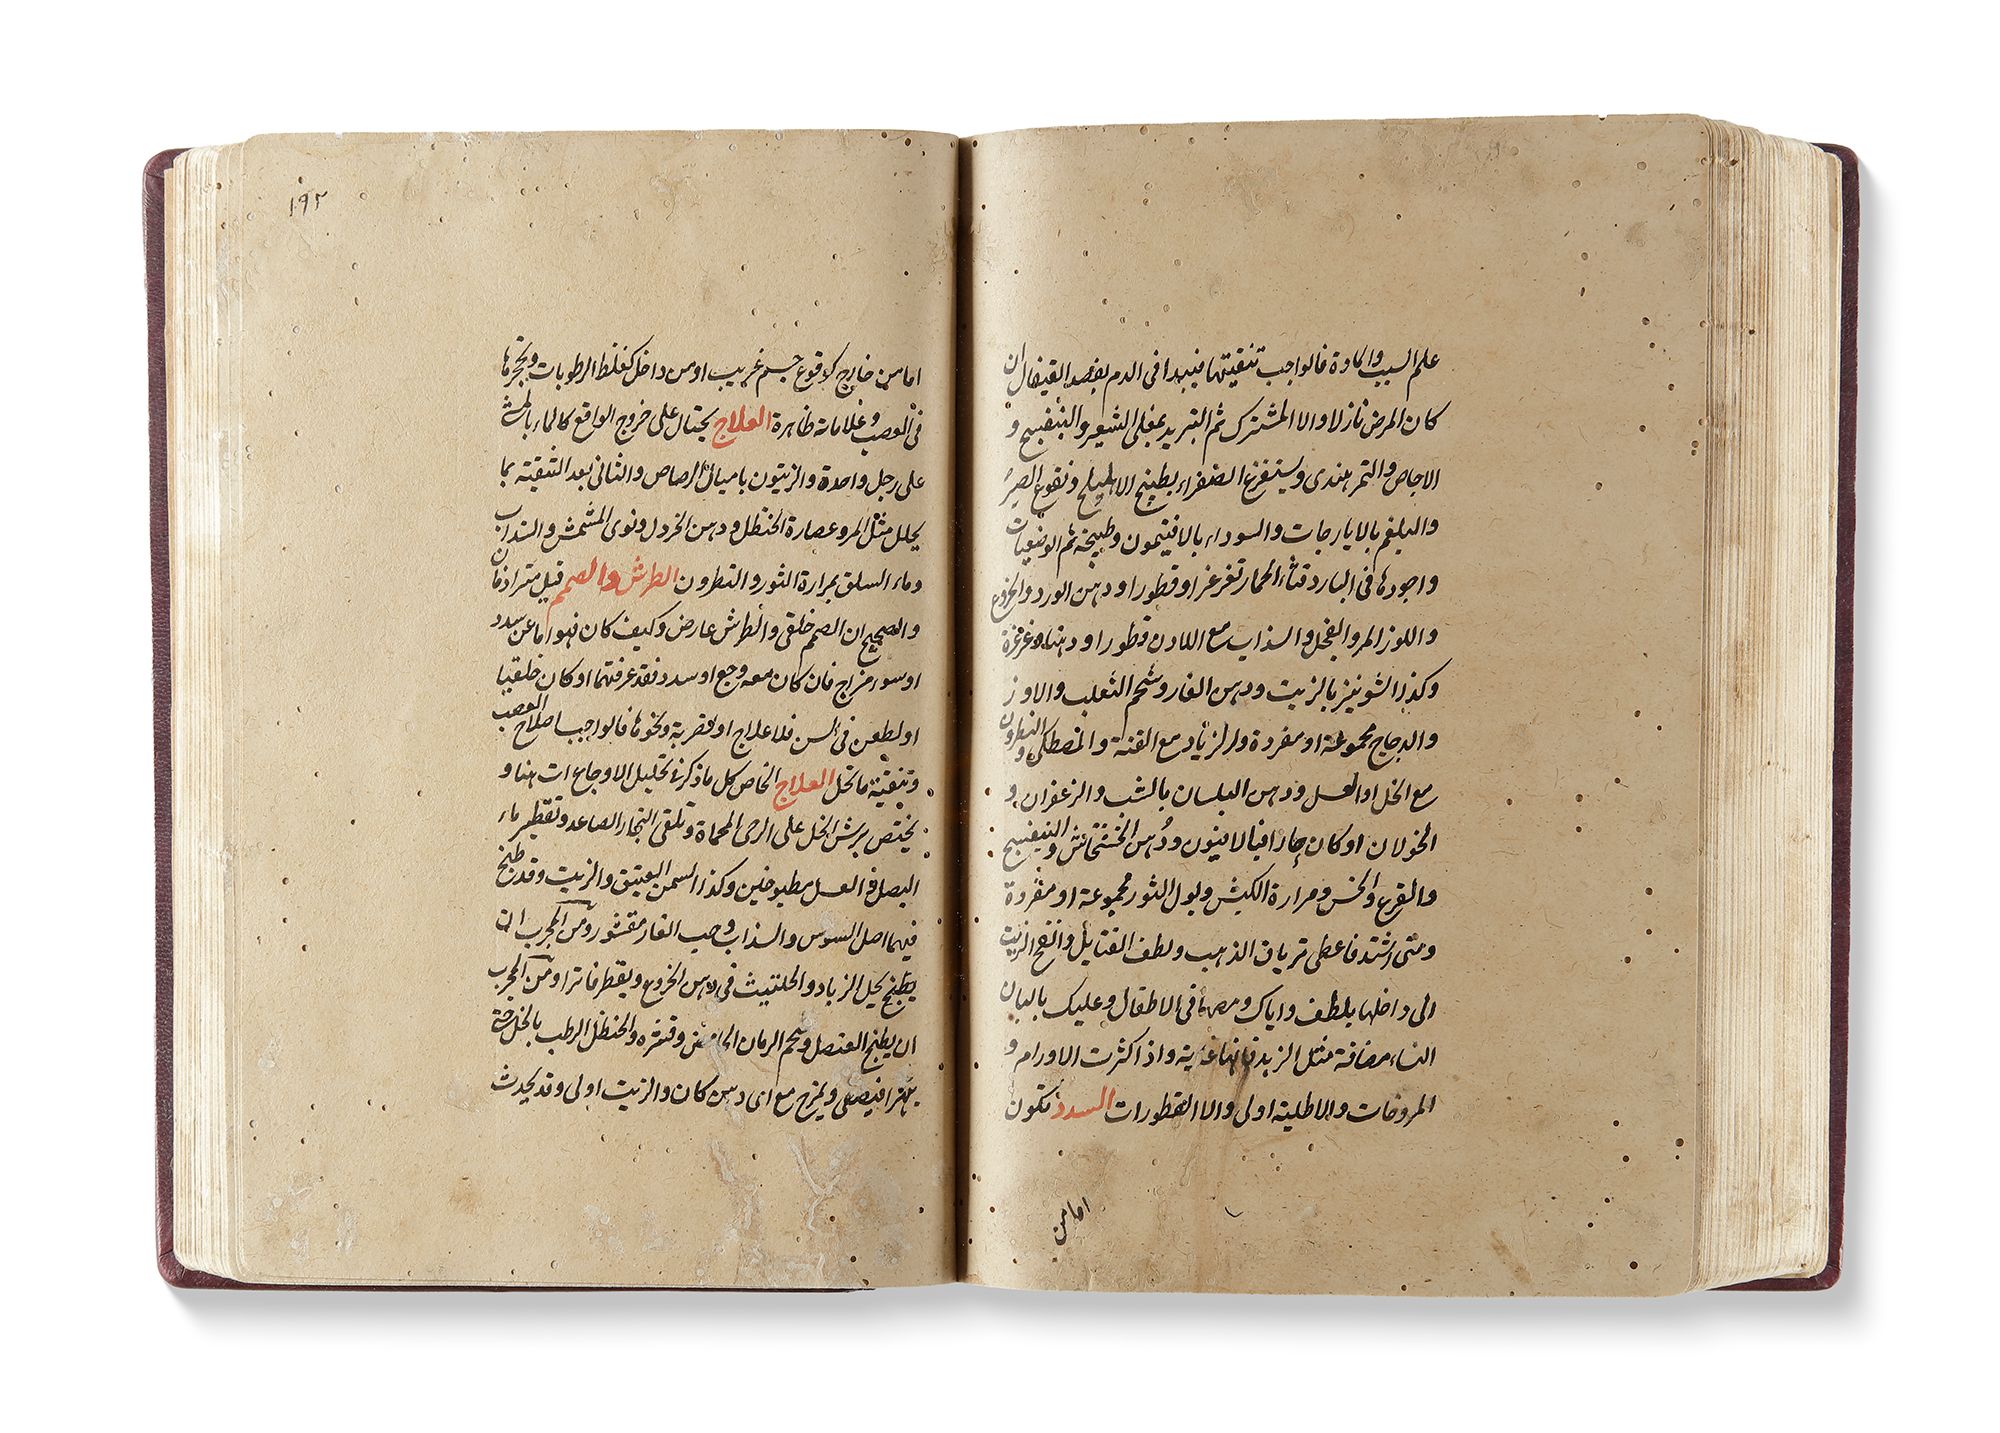 علم السبب والمادة فالواجب تنقيتها فيبدا فى الدم بفصد القيفال ان
كان المرض نازلا والا المشترك ثم التبريد بمغلى الشعير والبنفسج و
الاجاص والتمر هندى ويستفرغ الصفراء بطبيخ الاهليلج ونقوع الصبر
والبلغم بالايارجات والسوداء بالافتيمون وطبيخه ثم الوضعيات
واجودها فى البارد قثاء الحمار تغرغرا وقطورا ودهن الورد والخروع
واللوز المر والفجل والسذاب مع اللادن قطورا ودهنا وغرغرة
وكذا الشونيز بالزيت ودهن الغار وشحم الثعلب والاوز
والدجاج مجموعة او مفردة والزباد مع القنة والمصطكى والنطرون
مع الخل او العسل ودهن البلسان بالشب والزعفران و
الخولان او كان حارا فبالافيون ودهن الخشخاش والبنفسج
والقرع والخس ومرارة الكبش وبول الثور مجموعة او مفردة
ومتى اشتد فاعطى ترياق الذهب ولطف الفتايل وانفخ الزيت
الى داخلها بلطف واياك ومصه فى الاطفال وعليك بالبان
النساء مضافة مثل الزبد فانها غريبة واذا كثرت الاورام و
المروخات والاطلية اولى والا القطورات السدد تكون
اما من
١٩٢
اما من خارج كلاقوع جسم غريب او من داخل كغلظ الرطوبات وتحجرها
فى العصب وعلاماته ظاهرة العلاج يحتال على خروج الواقع كالماء بالمش
على رجل واحدة والزيتون باميال الرصاص والثانى بعد التنقية بما
يحلل مثل المر وعصارة الحنظل ودهن الخردل ونوى المشمش والسذاب
وماء السلق بمرارة الثور والنطرون الطرش والصمم قيل مترادفان
والصحيح ان الصمم خلقى والطرش عارض وكيف كان فهو اما عن سدد
او سوء مزاج فان كان معه وجع او سدد فقد عرفتهما او كان خلقيا
او لطعن فى السن فلا علاج او لضربة ونحوها فالواجب اصلاح العصب
وتنقية ما تخلل العلاج الخاص كل ما ذكر فى تحليل الاوجاع ات هنا و
يختص برش الخل على الرحى المحماة وتلقى البخار الصاعد وتقطير ماء
البصل فى العسل مطبوخين وكذا السمن العتيق والزيت وقد طبخ
فيهما اصل السوس والسذاب وحب الغار مقشورا ومن المجرب ان
يطبخ يحل الزباد والحلتيث فى دهن الخروع ويقطر فاترا ومن المجرب
ان يطبخ العنصل وشحم الرمان الحامض وقشره والحنظل الرطب بالخل حتى
يتهرا فيصفى ويمزج مع اى دهن كان والزيت اولى وقد يحدث